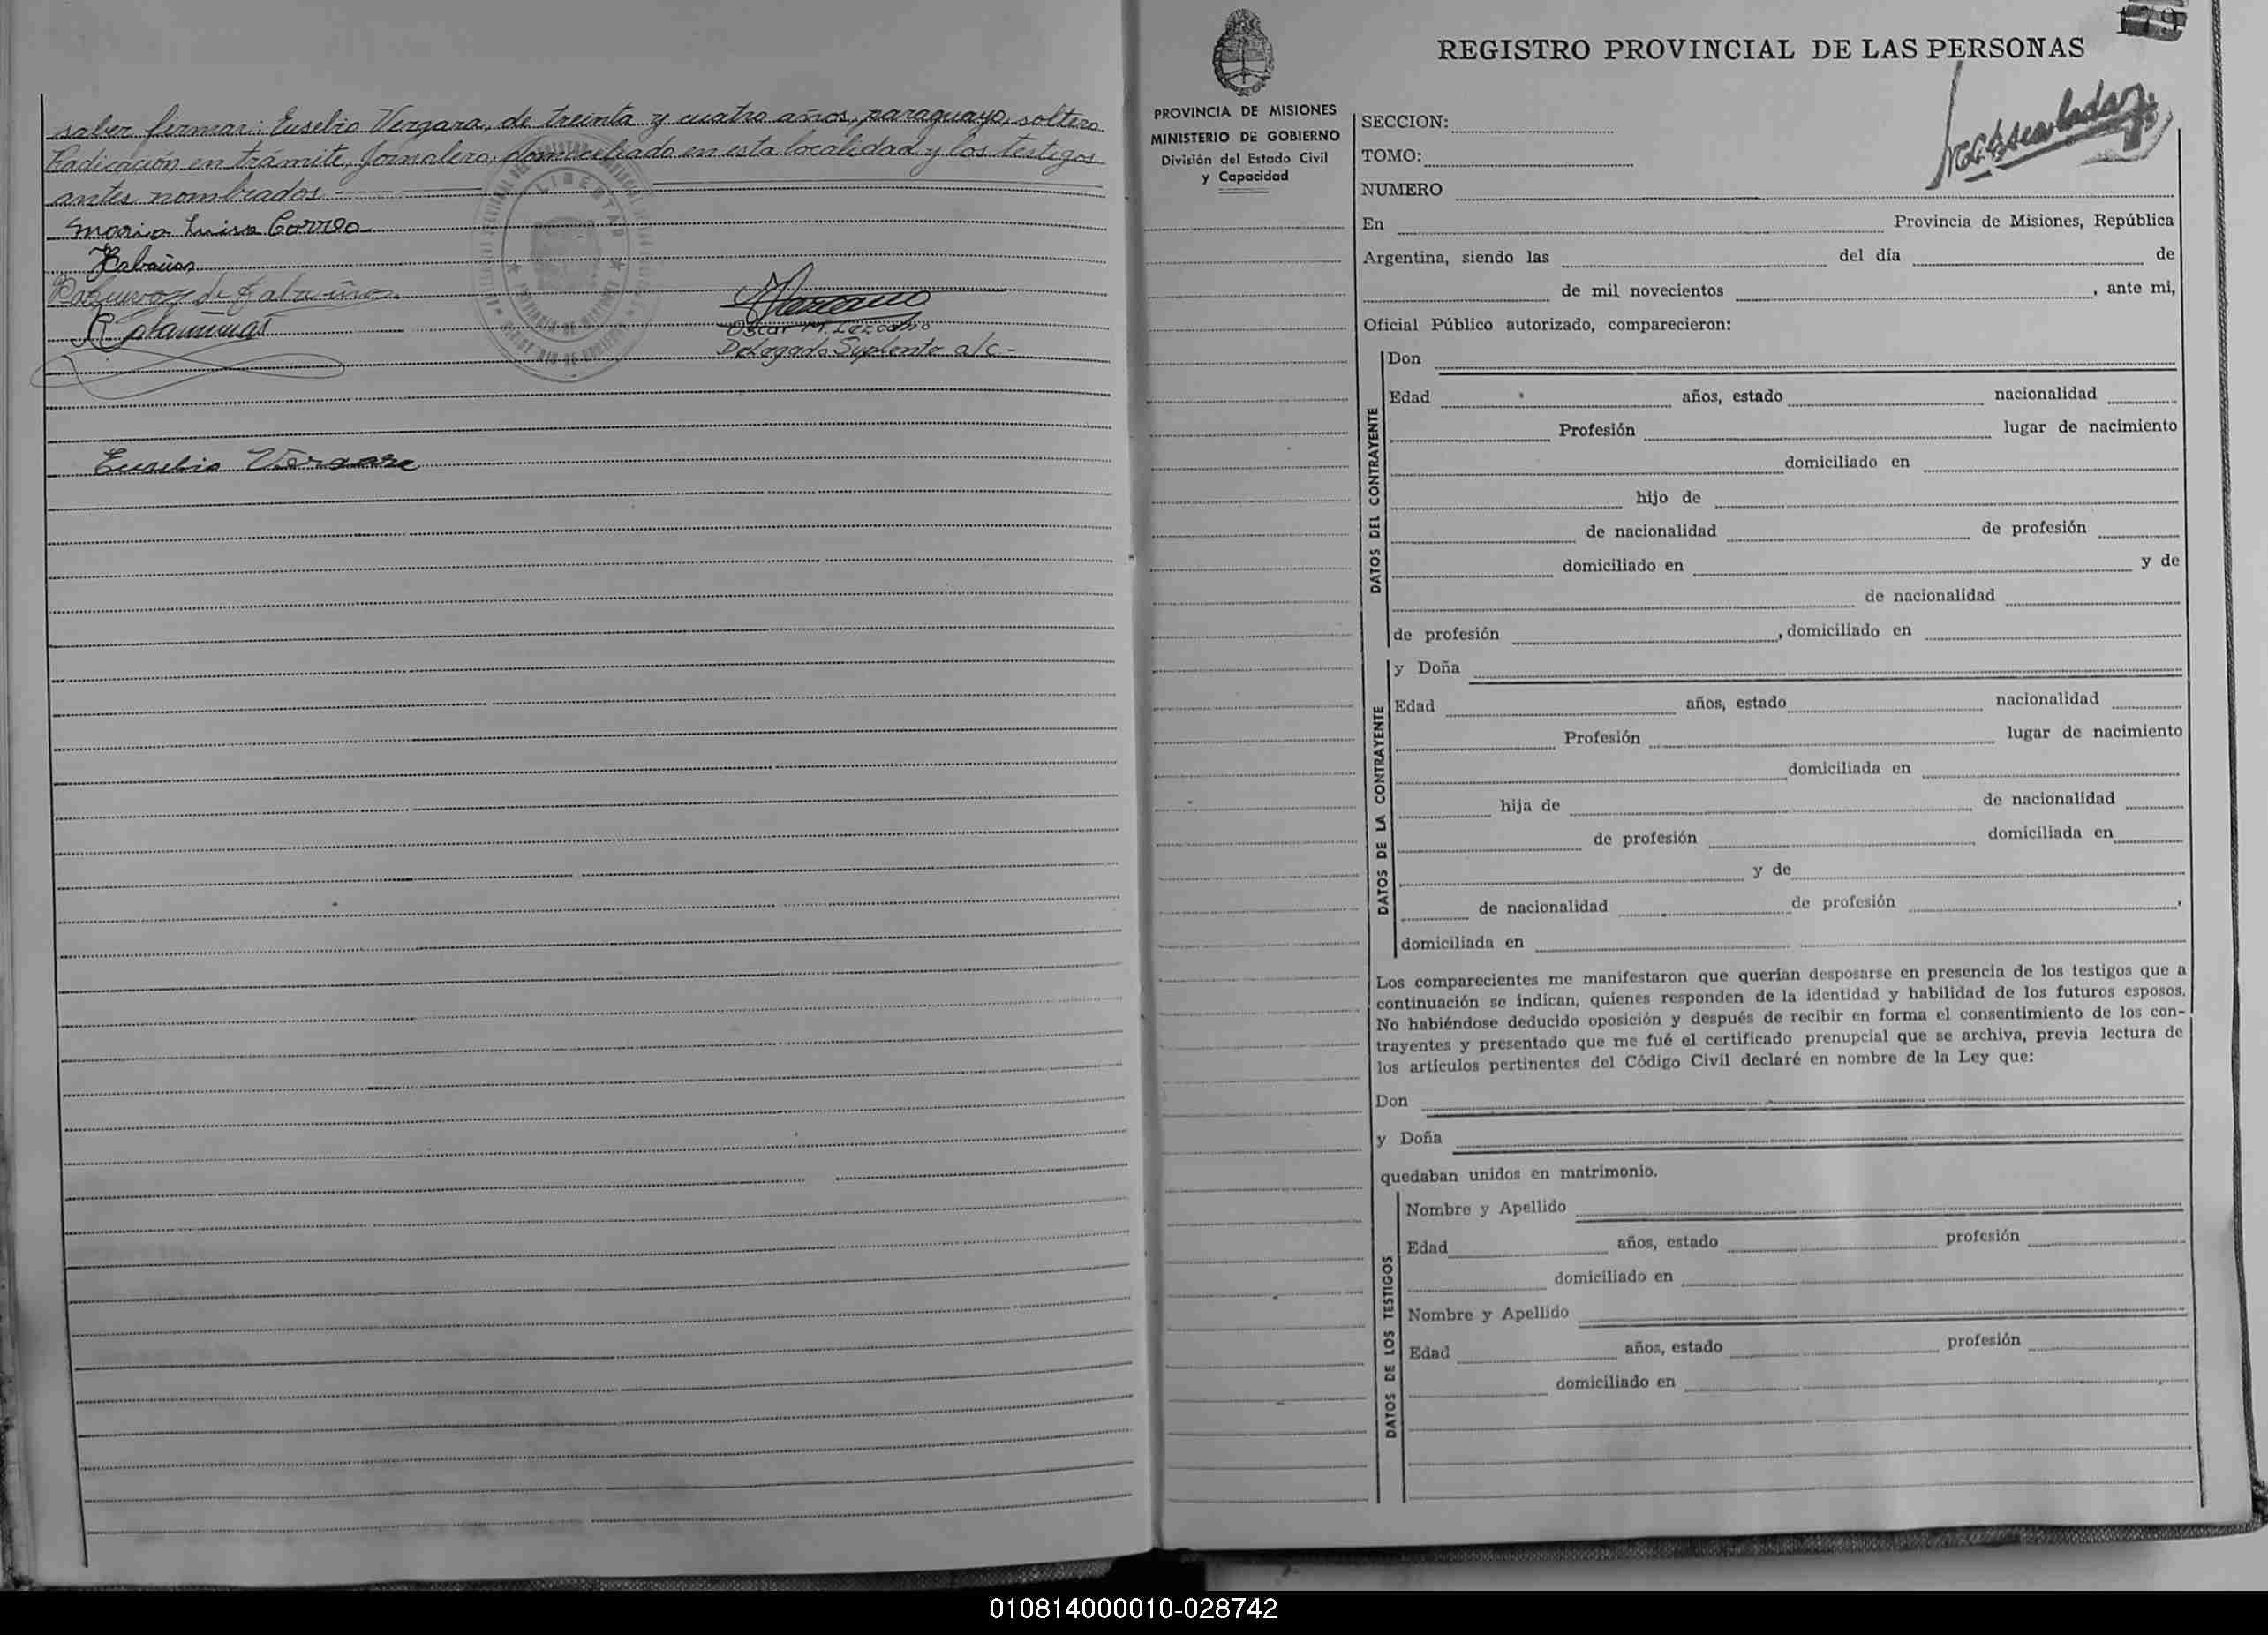 saber firmar: Eusebio Vergara, de treinta y cuatro años, paraguayo, soltero
Radicación en trámite, Jornalero, domiciliado en esta localidad y los testigos
antes nombrados
Maria Luisa Correa
Oscar M. Lezcano
Delegado Suplente a/c-
Eusebio Vergara
LIBERTAD
PROVINCIA DE MISIONES
179
REGISTRO PROVINCIAL DE LAS PERSONAS
PROVINCIA DE MISIONES
MINISTERIO DE GOBIERNO
División del Estado Civil
y Capacidad
SECCION:
TOMO:
NUMERO
En Provincia de Misiones, República
Argentina, siendo las del día de
de mil novecientos , ante mi,
Oficial Público autorizado, comparecieron:
DATOS DEL CONTRAYENTE
Don
Edad años, estado nacionalidad
Profesión lugar de nacimiento
domiciliado en
hijo de
de nacionalidad de profesión
domiciliado en y de
de nacionalidad
de profesión , domiciliado en
DATOS DE LA CONTRAYENTE
y Doña
Edad años, estado nacionalidad
Profesión lugar de nacimiento
domiciliada en
hija de de nacionalidad
de profesión domiciliada en
y de
de nacionalidad de profesión ,
domiciliada en
Los comparecientes me manifestaron que querían desposarse en presencia de los testigos que a
continuación se indican, quienes responden de la identidad y habilidad de los futuros esposos.
No habiéndose deducido oposición y después de recibir en forma el consentimiento de los con-
trayentes y presentado que me fué el certificado prenupcial que se archiva, previa lectura de
los artículos pertinentes del Código Civil declaré en nombre de la Ley que:
Don
y Doña
quedaban unidos en matrimonio.
DATOS DE LOS TESTIGOS
Nombre y Apellido
Edad años, estado profesión
domiciliado en
Nombre y Apellido
Edad años, estado profesión
domiciliado en
010814000010-028742